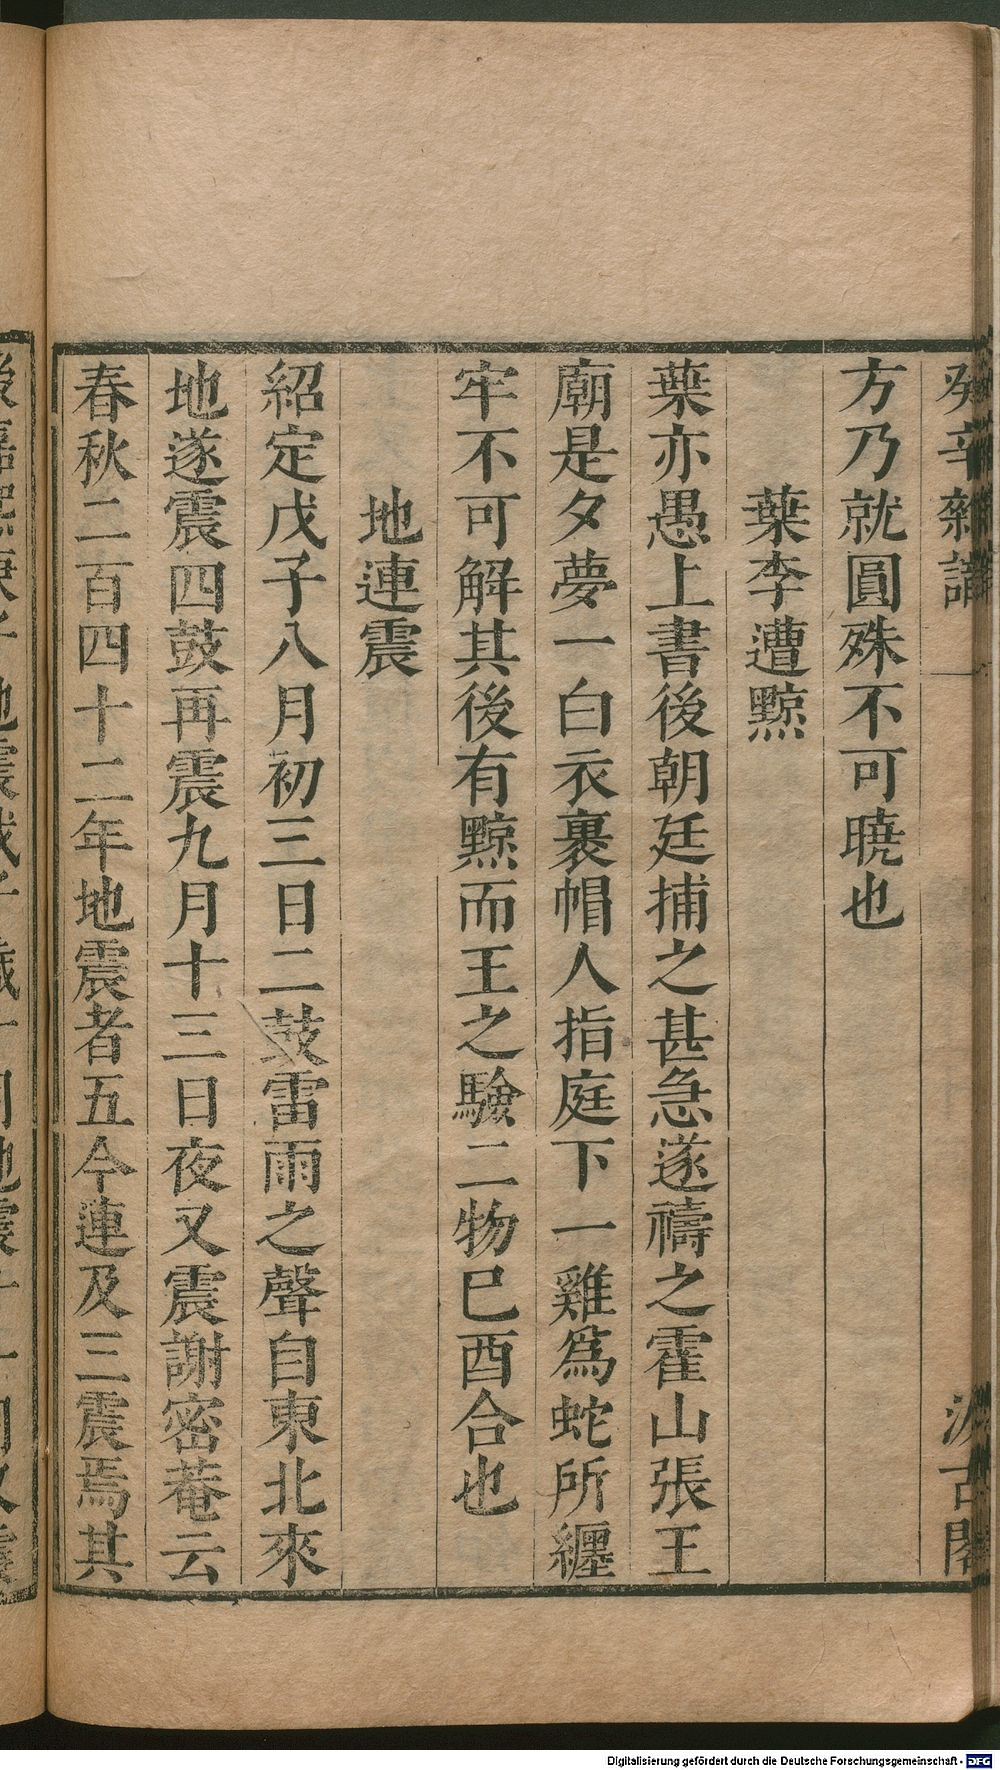 癸辛雜識
汲古閣
方乃就圓殊不可曉也
葉李遭黥
葉亦愚上書後朝廷捕之甚急遂禱之霍山張王
廟是夕夢一白衣裹帽人指庭下一雞爲蛇所纏
牢不可解其後有黥而王之驗二物巳酉合也
地連震
紹定戊子八月初三日二鼓雷雨之聲自東北來
地遂震四鼓再震九月十三日夜又震謝密菴云
春秋二百四十二年地震者五今連及三震焉其
Digitalisierung gefördert durch die Deutsche Forschungsgemeinschaft - DFG